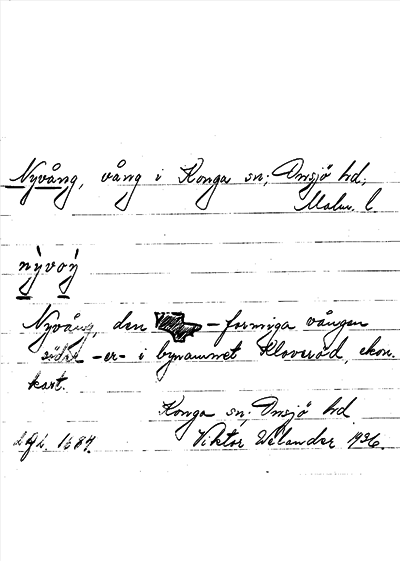 Nyvång, vång i Konga sn; Onsjö hd,
Malm. l.
nyvoŋ
Nyvång, den -formiga vången
söder -er- i bynamnet Kloveröd, ekon.
kart.
Konga sn; Onsjö hd
1684. Viktor Welander 1936.